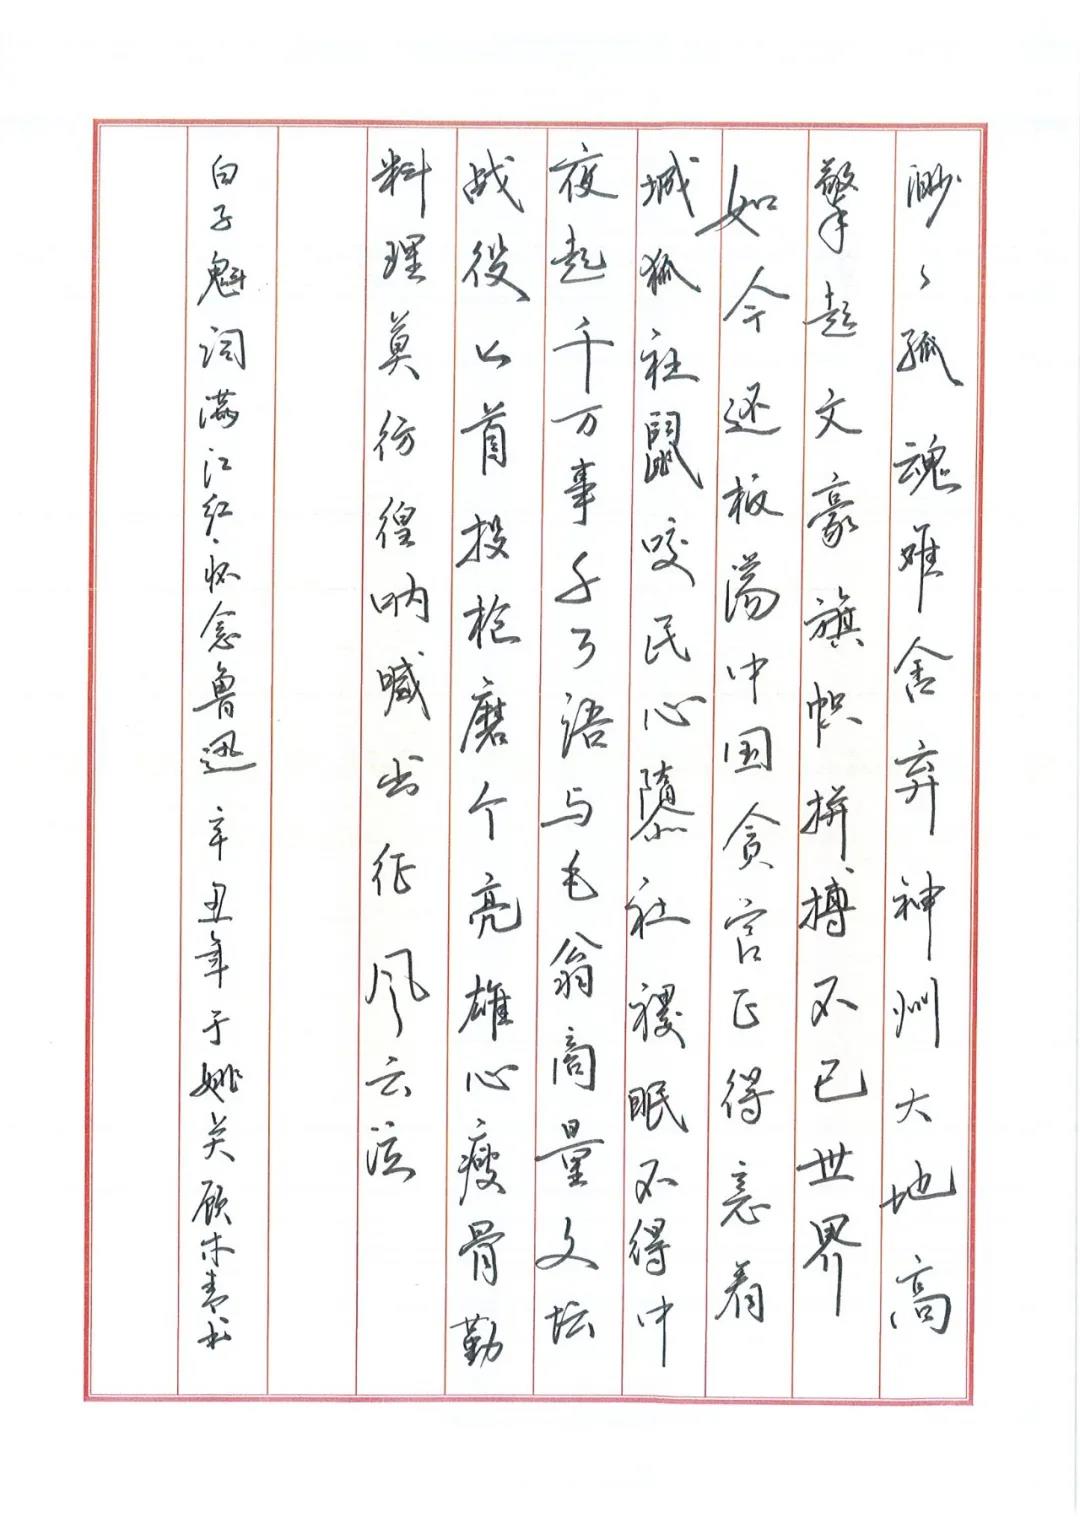 渺々孤魂难舍弃神州大地高
擎起文豪旗帜拼搏不已世界
如今还板荡中国贪官正得意看
城狐社鼠咬民心隳社稷眠不得中
夜起千万事予了语与毛翁商量文坛
战役匕首投枪磨个亮雄心瘦骨勤
料理莫彷徨呐喊出征风云泣
白子魁词满江红·怀念鲁迅辛丑年于姚关顾木青书